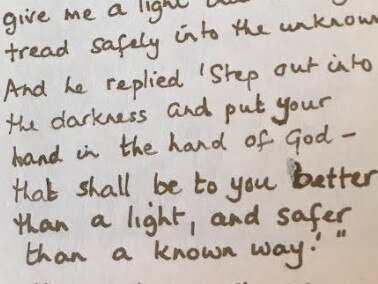 give me a light
tread safely into the unknown
And he replied 'Step out into
the darkness and put your
hand in the hand of God –
that shall be to you better
than a light, and safer
than a known way.'"